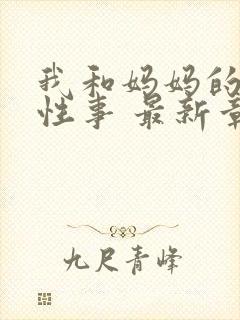 我和妈妈的
性事 最新章
九尺青峰